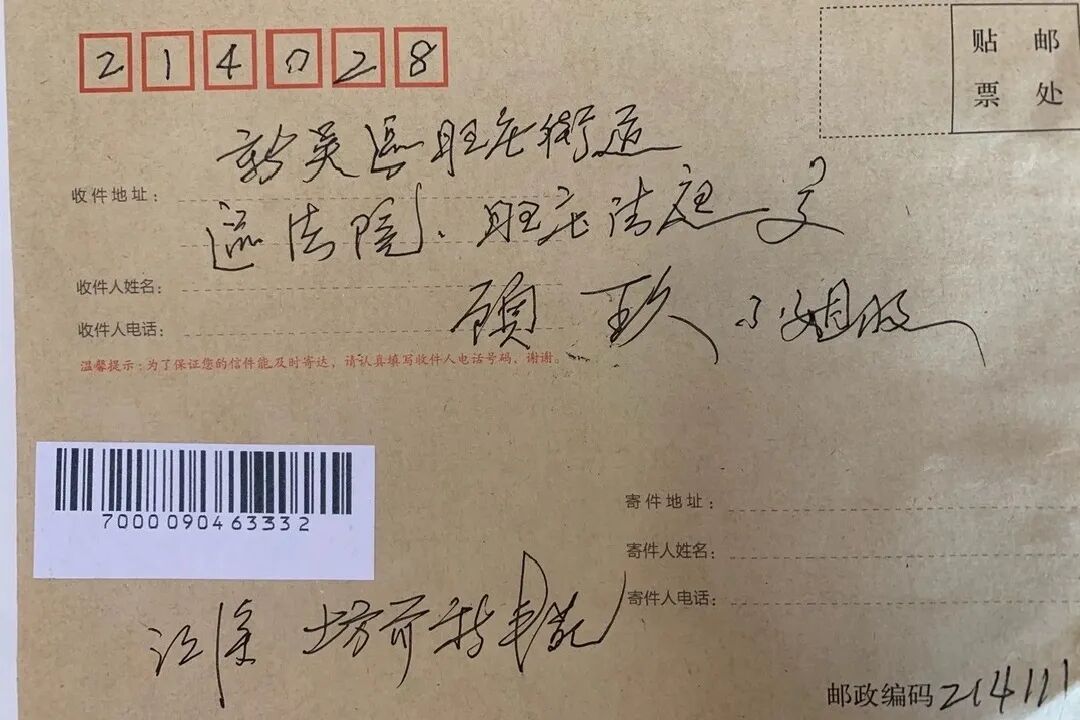 214028
贴 邮
票 处
新吴区旺庄街道
收件地址：
区法院、旺庄法庭
收件人姓名：
顾 玖 小姐收
收件人电话：
温馨提示：为了保证您的信件能及时寄达，请认真填写收件人电话号码、谢谢。
7000090463332
寄件地址：
寄件人姓名：
寄件人电话：
江溪 坊前新丰苑
邮政编码 214111